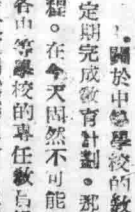 關於中等學校的敎
定期完成敎育計劃。那
程。在今天固然不可能
等學校的專任敎員